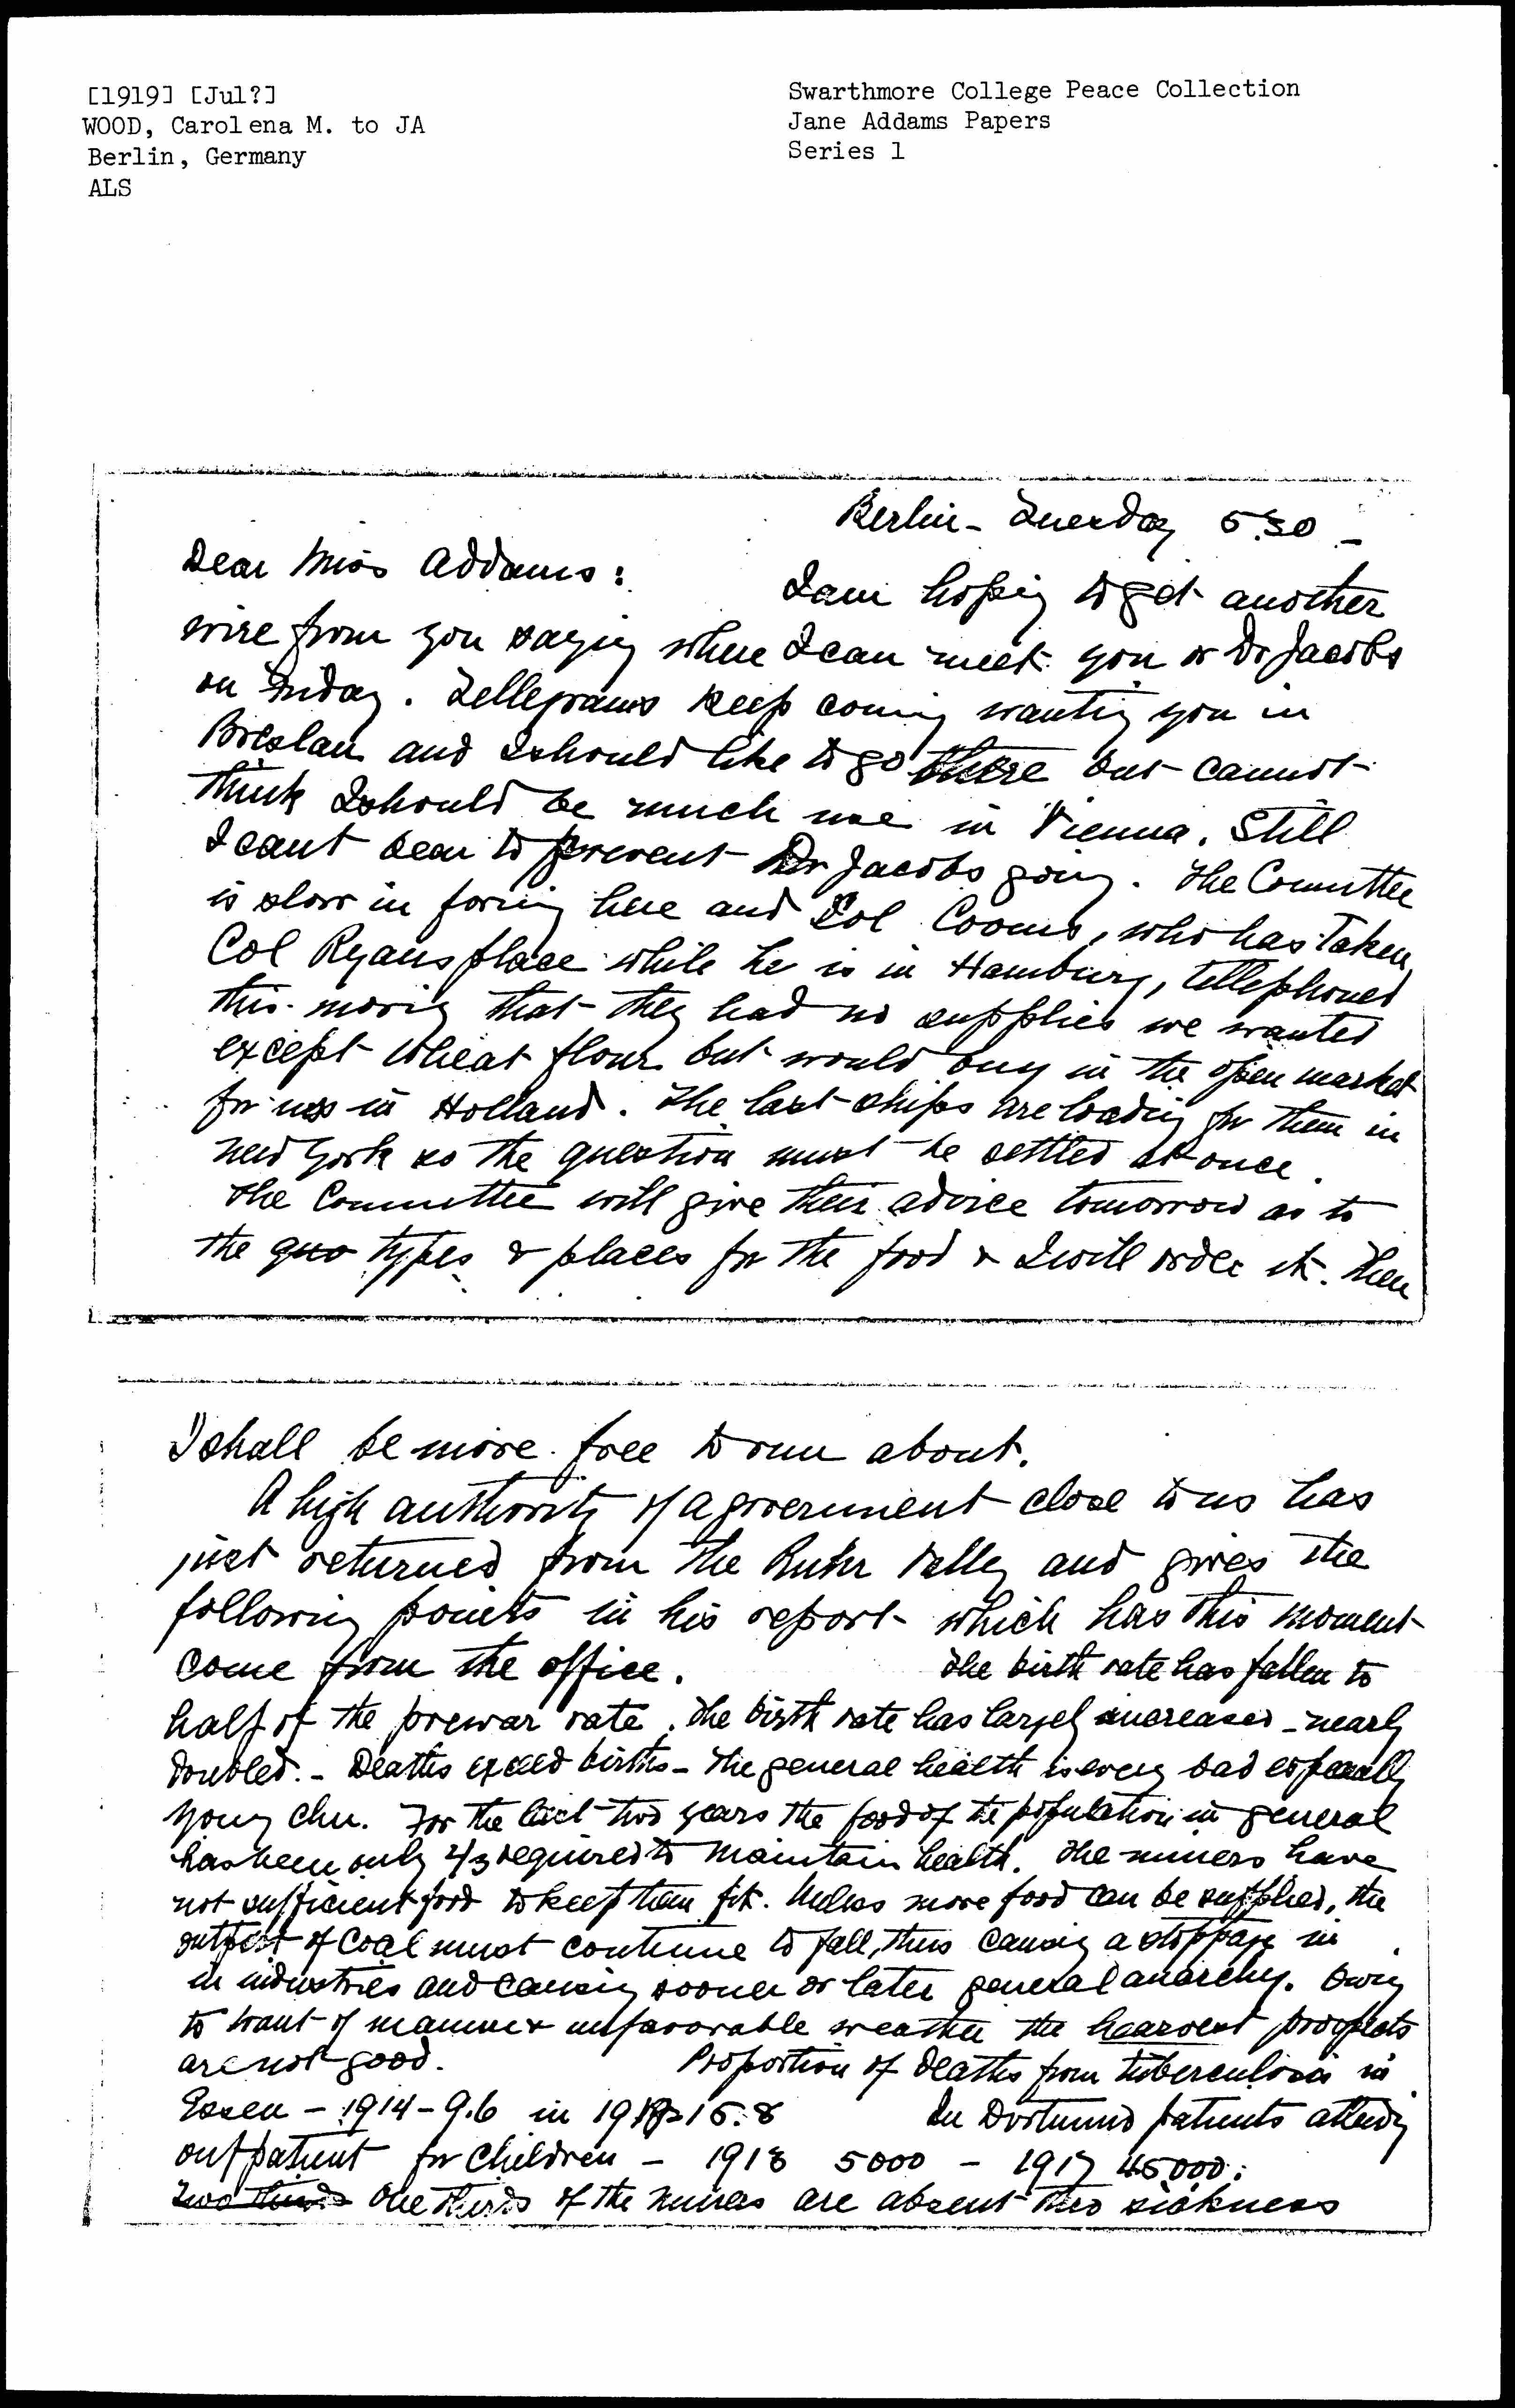 [1919] [Jul?]
WOOD, Carolena M. to JA
Berlin, Germany
ALS
Swarthmore College Peace Collection
Jane Addams Papers
Series 1
Berlin - Tuesday 5.30 -
Dear Miss Addams:
I am hoping to get another
wire from you saying where I can meet you or Dr Jacobs
on Friday. Tellegrams keep coming wanting you in
Breslau and I should like to go there but cannot
think I should be much use in Vienna. Still
I cant bear to prevent Dr Jacobs going. The Committee
is slow in foring here and Col Cooms, who has taken
Col Ryans place while he is in Hamburg, tellephoned
this moring that they had no supplies we wanted
except wheat flour but would buy in the open market
for us in Holland. The last ships are loading for them in
New York so the question must be settled at once.
The Committee will give their advice tomorrow as to
the quo types & places for the food & I will order it. Then
I shall be more free to run about.
A high authority of a government close to us has
just returned from the Ruhr Valley and gives the
following points in his report which has this moment
come from the office.
The birth rate has fallen to
half of the prewar rate. The birth rate has largely increased - nearly
doubled. - Deaths exceed births - The general health is very bad especially
young chn. For the last two years the food of the population in general
has been only 2/3 required to maintain health. The miners have
not sufficient food to keep them fit. Unless more food can be supplied, the
output of coal must continue to fall, thus causing a stoppage in
in industries and causing sooner or later general anarchy. Owing
to want of manure & unfavorable weather the hearvest prospects
are not good.
Proportion of deaths from tuberculosis in
Essen - 1914 - 9.6 in 1918 - 15.8
In Dortmund patients attending
outpatient for children - 1913 5000 - 1917 45000.
Two thirds One thirds of the miners are absent thro sickness